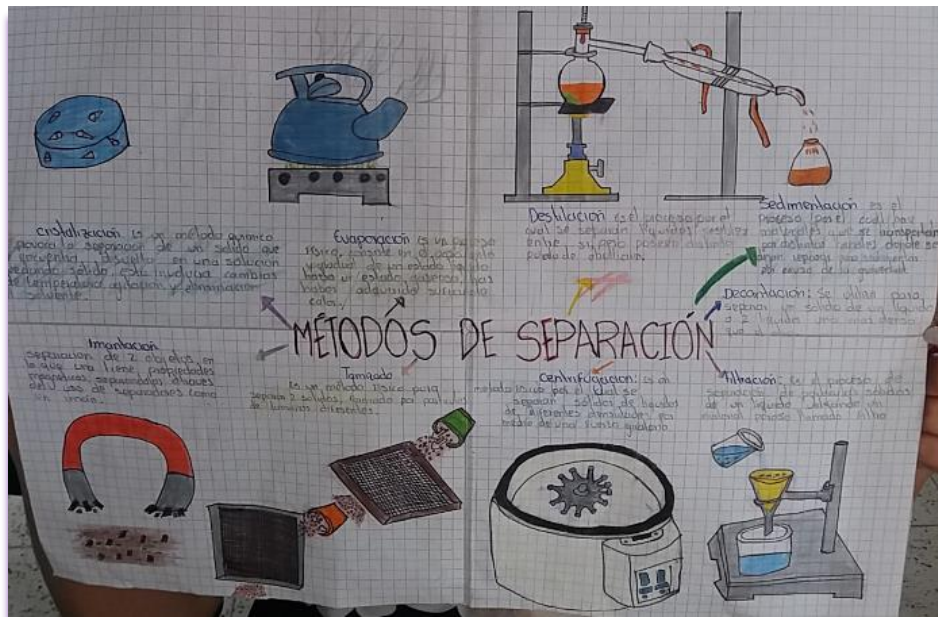 Cristalización es un método químico
la separación de un sólido que
encuentra disuelto en una solución
quedando sólido, esta involucra cambios
de temperatura, agitación y eliminación
solvente.
Evaporación es un proceso
físico, consiste en el paso
de un estado líquido
hacia un estado gaseoso, tras
haber adquirido suficiente
calor.
Destilación es el proceso por el
cual se separan líquidos
entre sí, pero poseen distinto
punto de ebullición.
Sedimentación es el
proceso por el cual
materiales que se transportan
por distintos canales donde se
por causa de la gravedad
Decantación: Se utiliza para
separar un sólido de un líquido
o 2 líquidos mas denso
que el
MÉTODOS DE SEPARACIÓN
Imantación
separación de 2 objetos, en
la que uno tiene propiedades
magnéticas, separandolos
del uso de separadores como
un imán.
Tamizado
es un método físico para
separar 2 solidos, formado por partículas
de tamaños diferentes.
Centrifugación: es un
método físico por el cual se
separan sólidos de líquidos
de diferentes densidades por
medio de una fuerza giratoria.
Filtración: es el proceso de
separación de partículas sólidas
de un líquido, utilizando un
material poroso llamado filtro